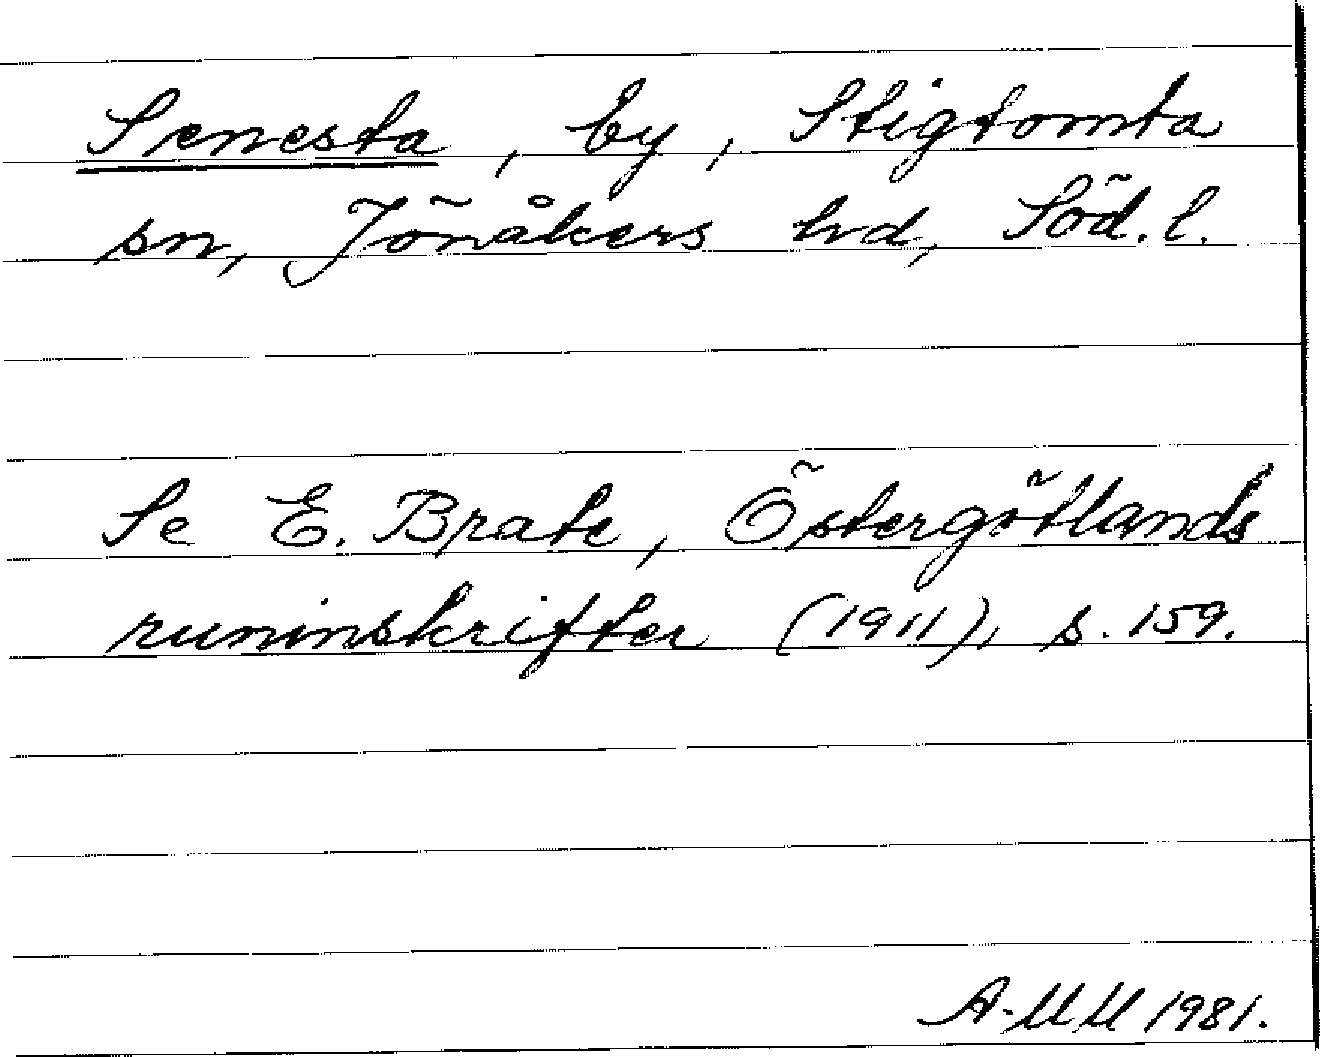 Svenesta, by, Stigtomta
sn, Jönåkers hd, Söd.l.
Se E. Brate, Östergötlands
runinskrifter (1911), s. 159.
A-MM 1981.